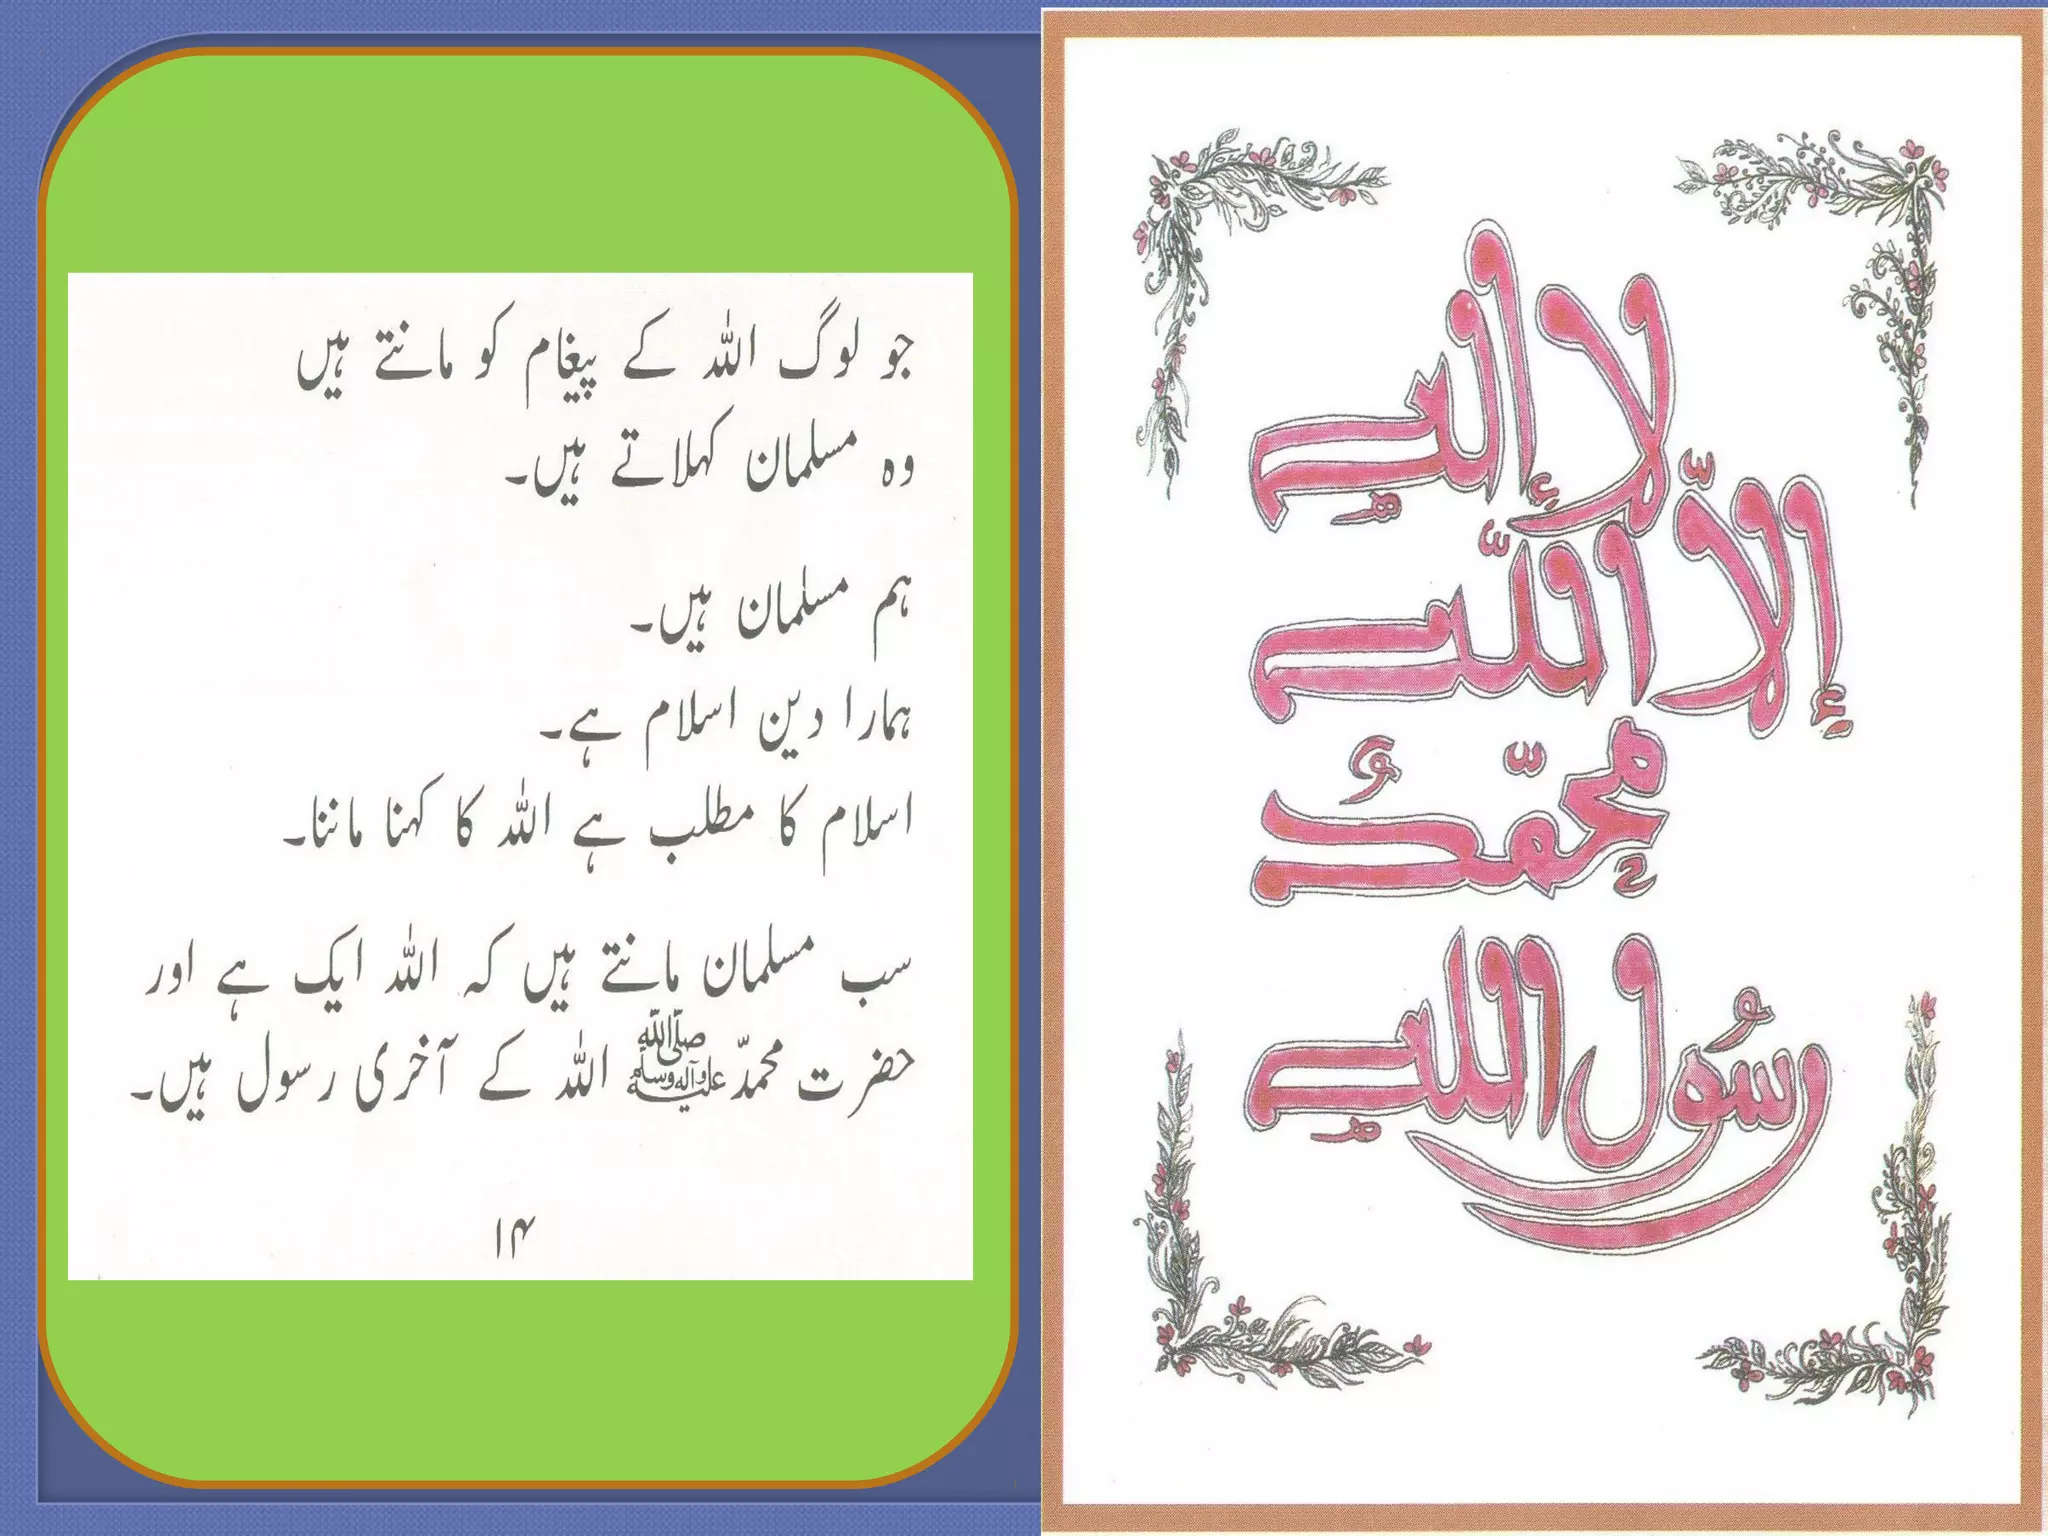 جو لوگ اللہ کے پیغام کو مانتے ہیں
وہ مسلمان کہلاتے ہیں۔
ہم مسلمان ہیں۔
ہمارا دین اسلام ہے۔
اسلام کا مطلب ہے اللہ کا کہنا ماننا۔
سب مسلمان مانتے ہیں کہ اللہ ایک ہے اور
حضرت محمدؐ صلی اللہ علیہ وآلہ وسلم اللہ کے آخری رسول ہیں۔
۱۴
لا إله
إلّا اللّه
محمّدٌ
رسُول الله